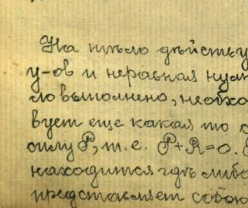 На тѣло дѣйству
у-ов и неравная нулю
ло выполнено, необхо
вует еще какая то с
силу P, т.е. P+R=0.
находится гдѣ либо
представляет собою